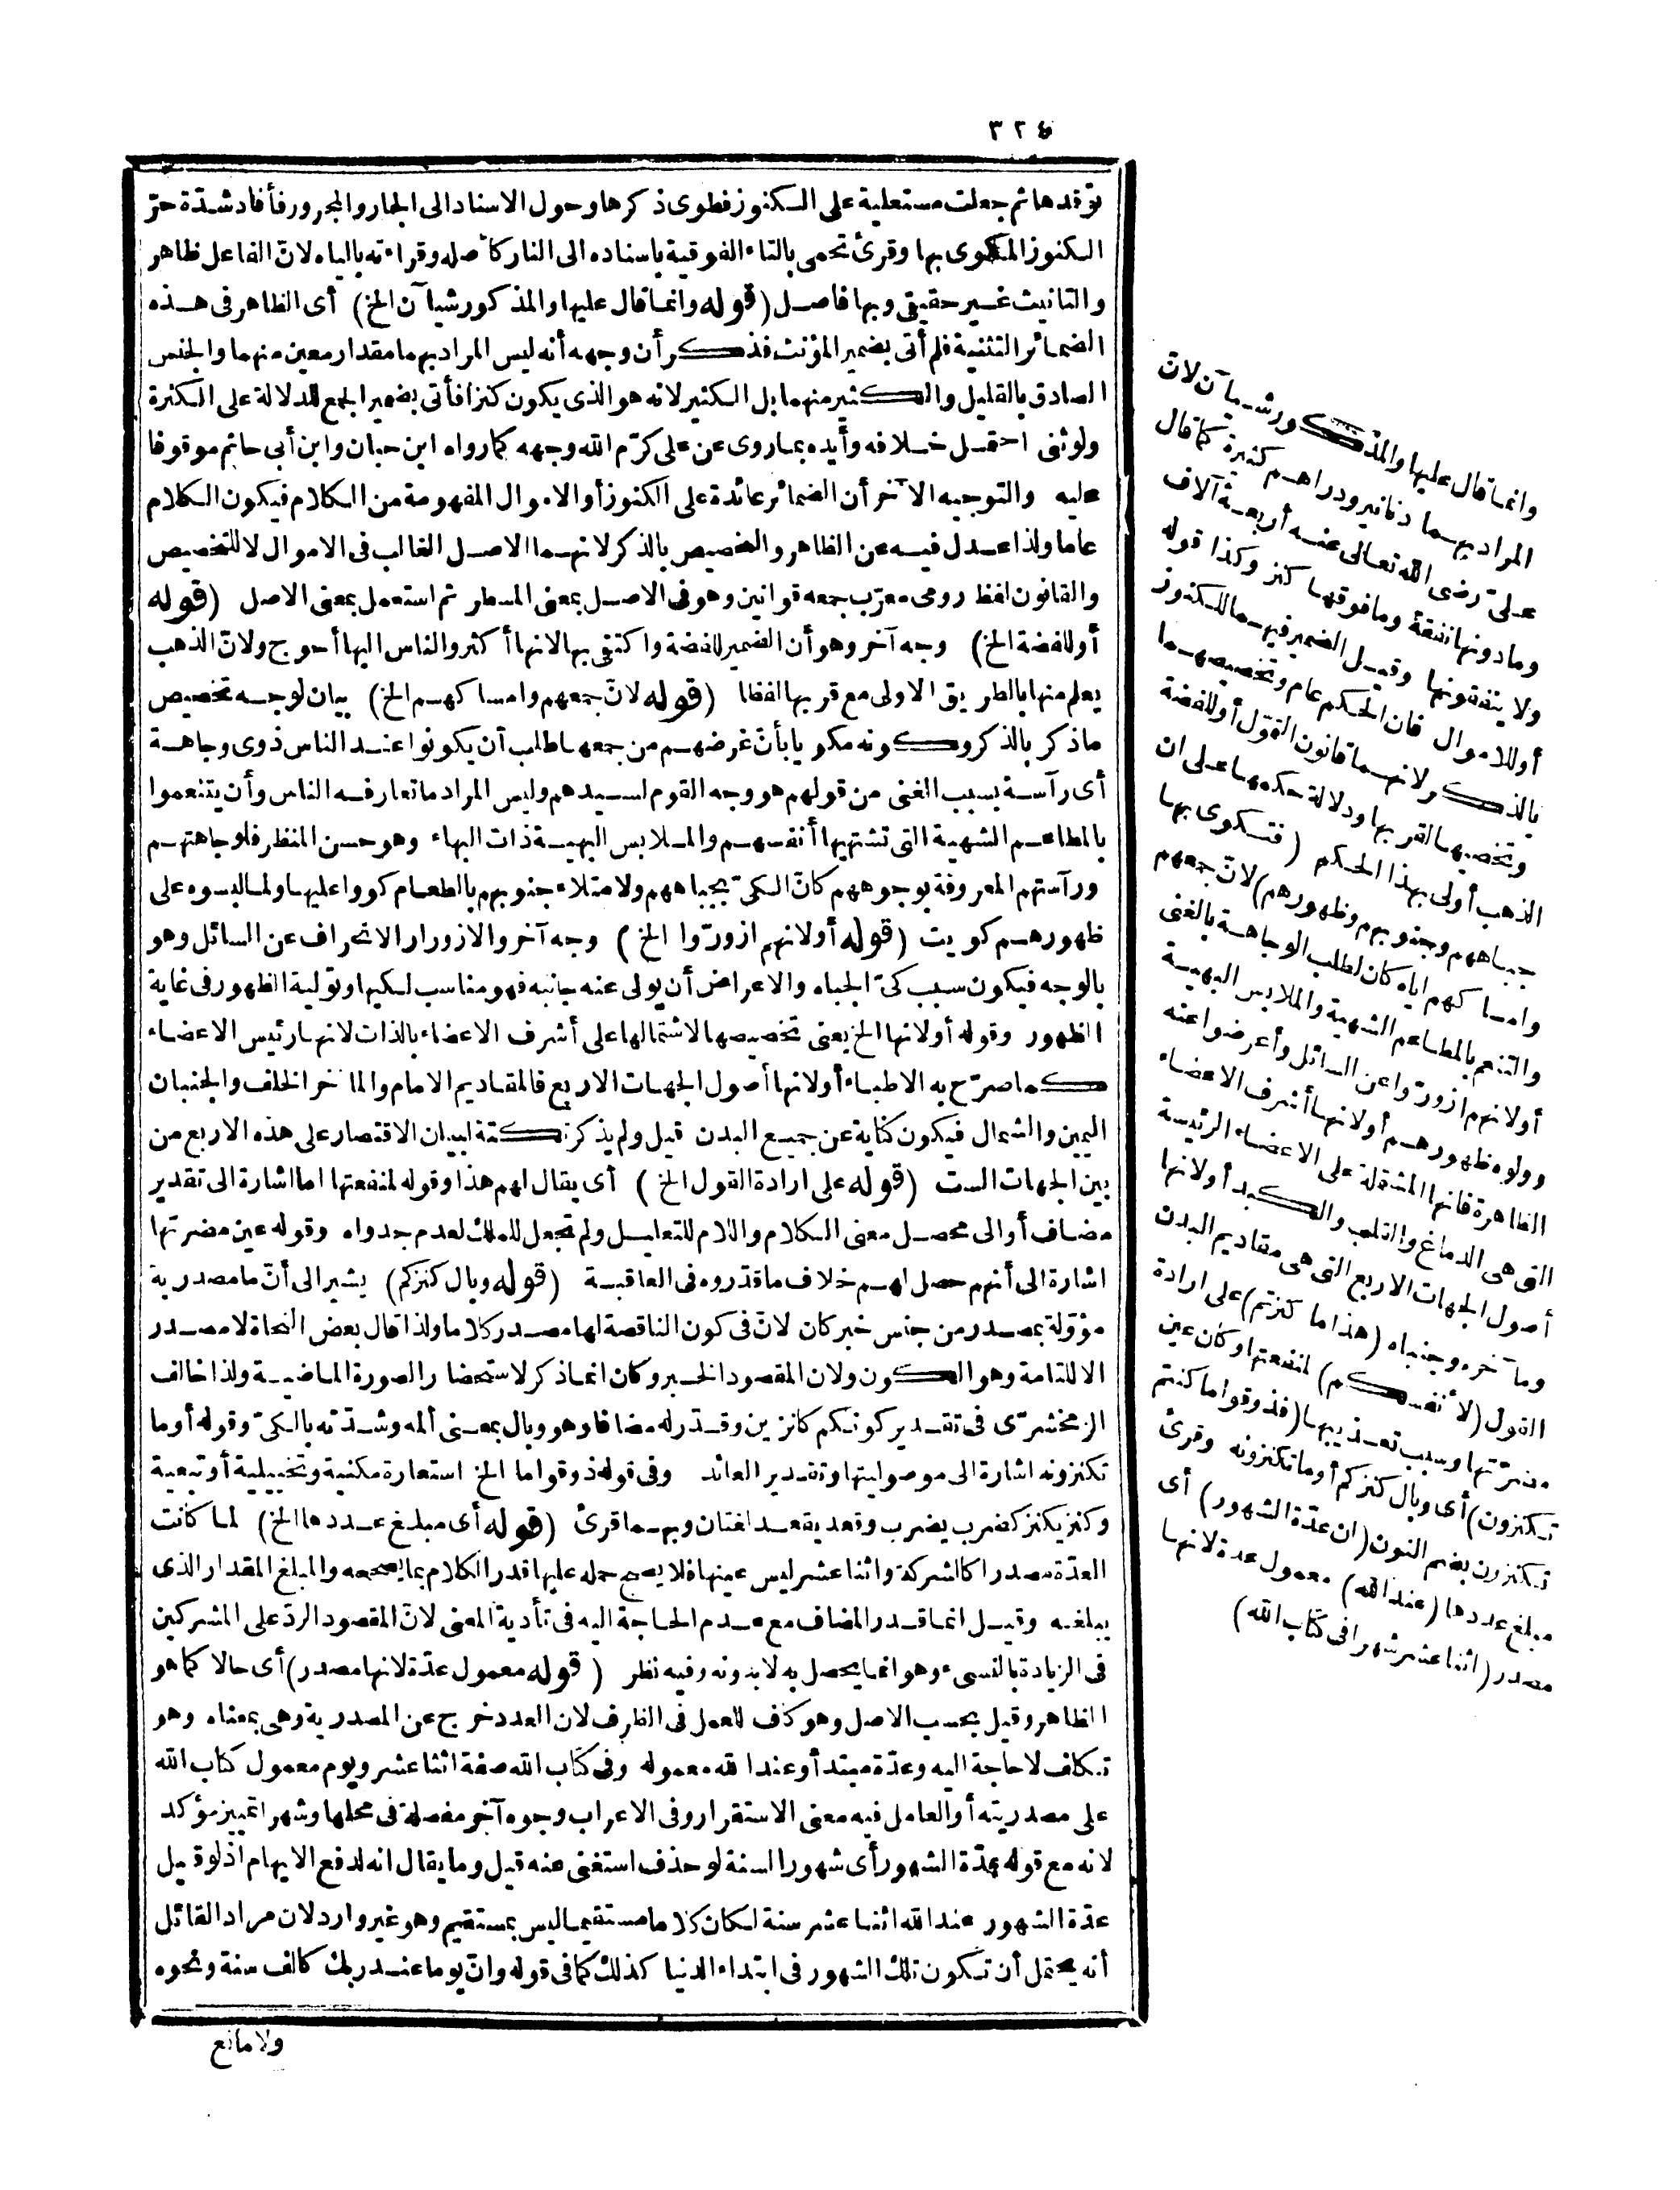 ٣٢٤
توقدها ثم جعلت مستعلية على الكنوز فطوى ذكرها وحول الاسناد الى الجار والمجرور فأفاد شدّة حرّ
الكنوز المكوى بها وقرئ تحمى بالتاء الفوقية باسناده الى النار كأصله وقراءته بالياء لانّ الفاعل ظاهر
والتانيث غير حقيقى وبها فاصل (قوله وانما قال عليها والمذكور شيآن الخ) أى الظاهر فى هذه
الضمائر التثنية فلم أتى بضمير المؤنث فذكر أن وجهه أنه ليس المراد بهما مقدار معين منهما والجنس
الصادق بالقليل والكثير منهما بل الكثير لانه هو الذى يكون كنزا فأتى بضمير الجمع للدلالة على الكثرة
ولو ثنى احتمل خلافه وأيده بما روى عن على كرّم الله وجهه كما رواه ابن حبان وابن أبى حاتم موقوفا
عليه والتوجيه الآخر أن الضمائر عائدة على الكنوز أو الاموال المفهومة من الكلام فيكون الكلام
عاما ولذا عدل فيه عن الظاهر والتخصيص بالذكر لانهما الاصل الغالب فى الاموال لا للتخصيص
والقانون لفظ رومى معرّب جمعه قوانين وهو فى الاصل بمعنى المسطر ثم استعمل بمعنى الاصل (قوله
أو للفضة الخ) وجه آخر وهو أن الضمير للفضة واكتفى بها لانها أكثر والناس اليها أحوج ولانّ الذهب
يعلم منها بالطريق الاولى مع قربها لفظا (قوله لانّ جمعهم وامساكهم الخ) بيان لوجه تخصيص
ماذكر بالذكر وكونه مكويا بأنّ غرضهم من جمعها طلب أن يكونوا عند الناس ذوى وجاهة
أى رآسة بسبب الغنى من قولهم هو وجه القوم لسيدهم وليس المراد ما تعارفه الناس وأن يتنعموا
بالمطاعم الشهية التى تشتهيها أنفسهم والملابس البهية ذات البهاء وهو حسن المنظر فلوجاهتهم
ورآستهم المعروفة بوجوههم كانّ الكىّ بجباههم ولامتلاء جنوبهم بالطعام كووا عليها ولما لبسوه على
ظهورهم كويت (قوله أو لانهم ازورّوا الخ) وجه آخر والازورار الانحراف عن السائل وهو
بالوجه فيكون سبب كىّ الجباه والاعراض أن يولى عنه جانبه فهو مناسب لكيها وتولية الظهور فى غاية
الظهور وقوله أو لانها الخ يعنى تخصيصها لاشتمالها على أشرف الاعضاء بالذات لانها رئيس الاعضاء
كما صرّح به الاطباء أو لانها أصول الجهات الاربع فالمقاديم الامام والمآخر الخلف والجنبان
اليمين والشمال فيكون كناية عن جميع البدن قيل ولم يذكر نكتة لبيان الاقتصار على هذه الاربع من
بين الجهات الست (قوله على ارادة القول الخ) أى يقال لهم هذا وقوله لمنفعتها اما اشارة الى تقدير
مضاف أو الى محصل معنى الكلام واللام للتعليل ولم تجعل للملك لعدم جدواه وقوله عين مضرتها
اشارة الى أنهم حصل لهم خلاف ما قدّروه فى العاقبة (قوله وبال كنزكم) يشير الى أنّ ما مصدرية
مؤوّلة بمصدر من جنس خبر كان لانّ فى كون الناقصة لها مصدر كلاما ولذا قال بعض النحاة لا مصدر
الا للتامة وهو الكون ولان المقصود الخبر وكان انما ذكر لاستحضار الصورة الماضية ولذا خالف
الزمخشرّى فى تقدير كونكم كانزين وقدّر له مضافا وهو وبال بمعنى ألمه وشدّته بالكىّ وقوله أو ما
تكنزونه اشارة الى موصوليتها وتقدير العائد وفى قوله ذوقوا ما الخ استعارة مكنية وتخييلية أو تبعية
وكنز يكنز كضرب يضرب وقعد يقعد لغتان وبهما قرئ (قوله أى مبلغ عددها الخ) لما كانت
العدّة مصدرا كالشركة واثنا عشر ليس عينها فلا يصح حمله عليها قدر الكلام بما يصححه والمبلغ المقدار الذى
يبلغه وقيل انما قدر المضاف مع عدم الحاجة اليه فى تأدية المعنى لانّ المقصود الردّ على المشركين
فى الزيادة بالنسىء وهو انما يحصل به لا بدونه وفيه نظر (قوله معمول عدّة لانها مصدر) أى حالا كما هو
الظاهر وقيل بحسب الاصل وهو كاف للعمل فى الظرف لان العدد خرج عن المصدرية وهى بمعناه وهو
تكلف لا حاجة اليه وعدّة مبتدأ وعند الله معموله وفى كتاب الله صفة اثنا عشر ويوم معمول كتاب الله
على مصدريته أو العامل فيه معنى الاستقرار وفى الاعراب وجوه آخر مفصلة فى محلها وشهرا تمييز مؤكد
لانه مع قوله عدّة الشهور أى شهور السنة لو حذف استغنى عنه قيل وما يقال انه لدفع الابهام اذ لو قيل
عدّة الشهور عند الله اثنا عشر سنة لكان كلاما مستقيما ليس بمستقيم وهو غير وارد لان مراد القائل
أنه يحتمل أن تكون تلك الشهور فى ابتداء الدنيا كذلك كما فى قوله وانّ يوما عند ربك كالف سنة ونحوه
ولا مانع
وانما قال عليها والمذكور شيآن لانّ
المراد بهما دنانير ودراهم كثيرة كما قال
علىّ رضى الله تعالى عنه أربعة آلاف
وما دونها نفقة وما فوقها كنز وكذا قوله
ولا ينفقونها وقيل الضمير فيهما للكنوز
أو للاموال فان الحكم عام وتخصيصهما
بالذكر لانهما قانون التموّل أو للفضة
وتخصيصها لقربها ودلالة حكمها على ان
الذهب أولى بهذا الحكم (فتكوى بها
جباههم وجنوبهم وظهورهم) لانّ جمعهم
وامساكهم اياه كان لطلب الوجاهة بالغنى
والتنعم بالمطاعم الشهية والملابس البهية
أو لانهم ازورّوا عن السائل وأعرضوا عنه
وولوه ظهورهم أو لانها أشرف الاعضاء
الظاهرة فانها المشتملة على الاعضاء الرئيسة
التى هى الدماغ والقلب والكبد أو لانها
أصول الجهات الاربع التى هى مقاديم البدن
ومآخره وجنباه (هذا ما كنزتم) على ارادة
القول (لأنفسكم) لمنفعتها وكان عين
مضرّتها وسبب تعذيبها (فذوقوا ما كنتم
تكنزون) أى وبال كنزكم أو ما تكنزونه وقرئ
تكنزون بضم النون (ان عدّة الشهور) أى
مبلغ عددها (عند الله) معمول عدة لانها
مصدر (اثنا عشر شهرا فى كتاب الله)